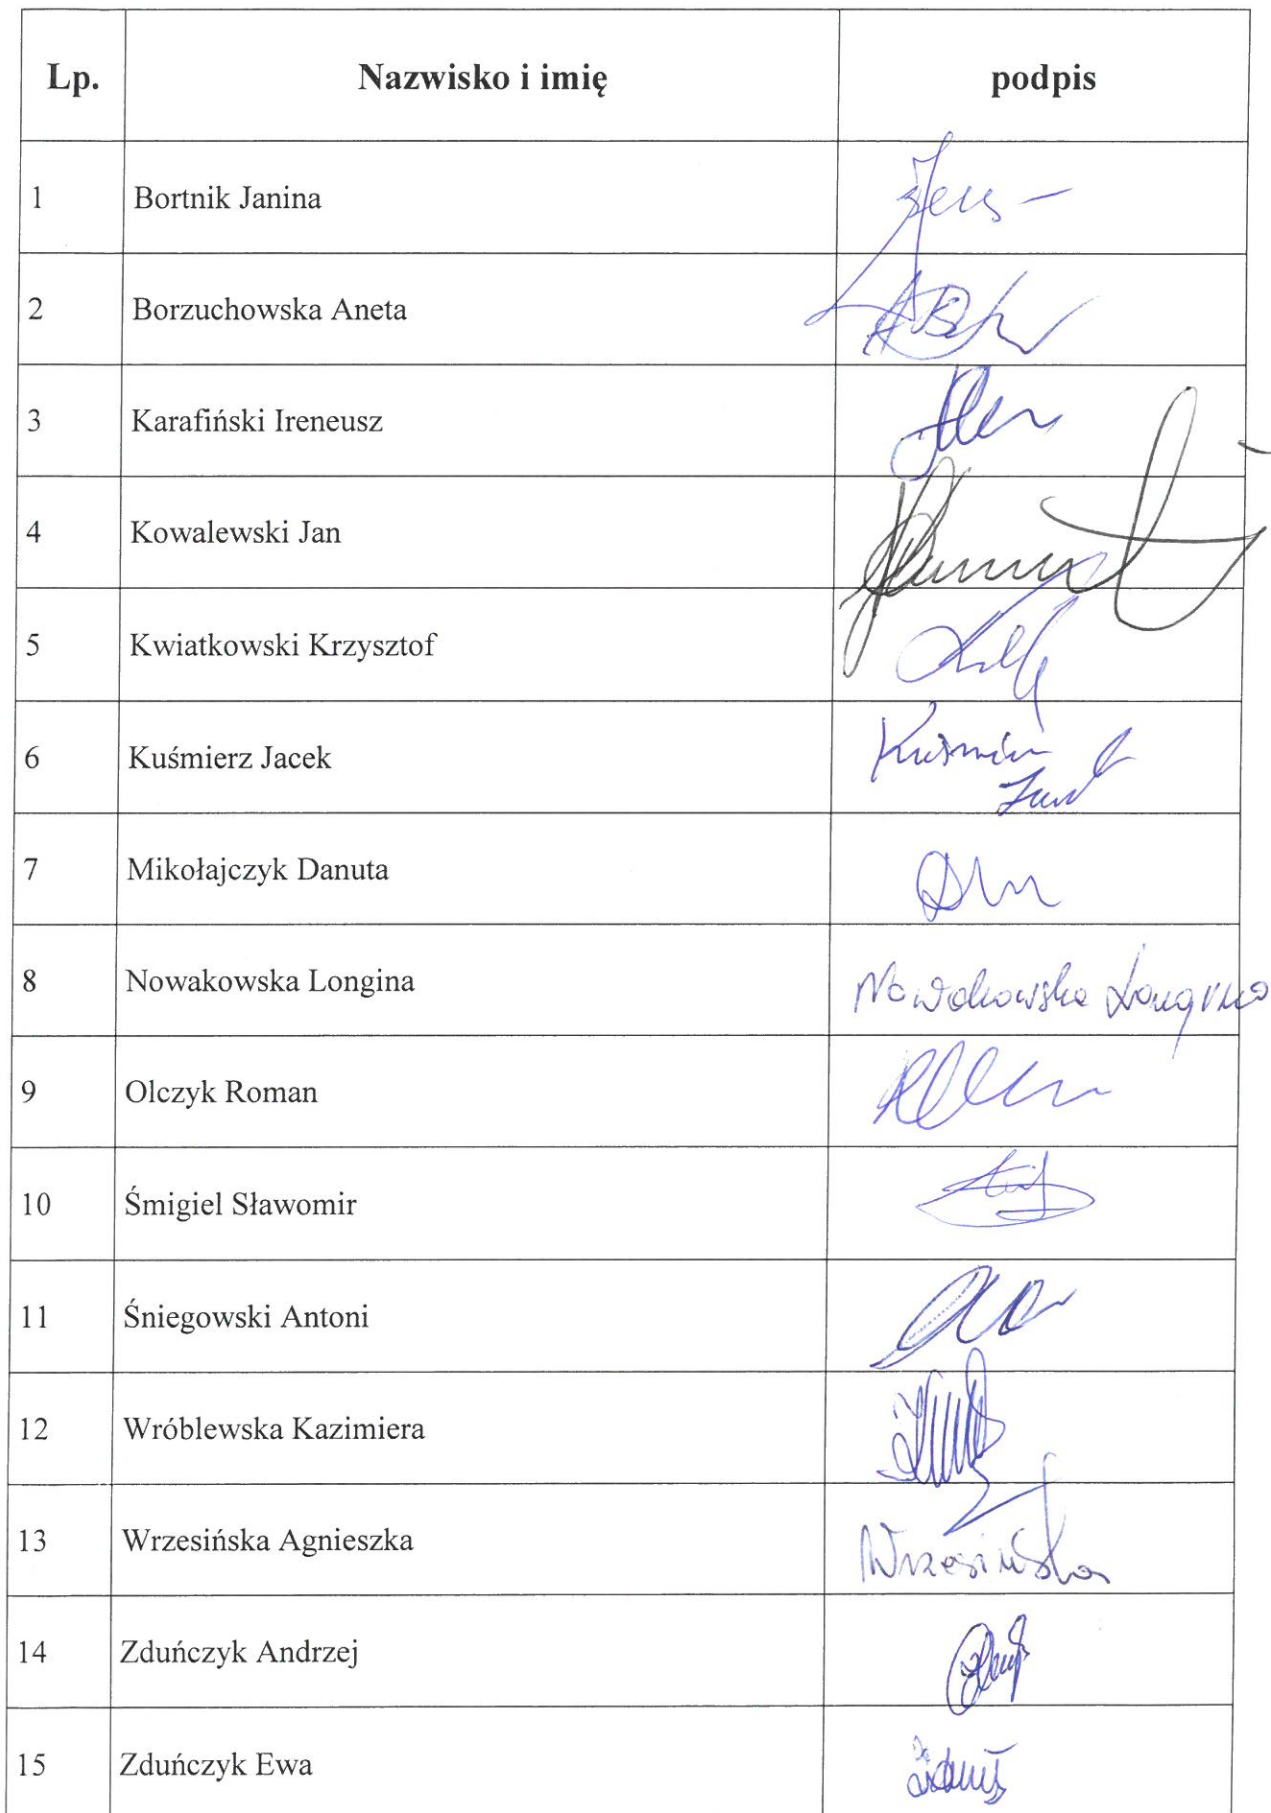 Lp. Nazwisko i imię podpis
1 Bortnik Janina
2 Borzuchowska Aneta
3 Karafiński Ireneusz
4 Kowalewski Jan
5 Kwiatkowski Krzysztof
6 Kuśmierz Jacek
7 Mikołajczyk Danuta
8 Nowakowska Longina Nowakowska Longina
9 Olczyk Roman
10 Śmigiel Sławomir
11 Śniegowski Antoni
12 Wróblewska Kazimiera
13 Wrzesińska Agnieszka Wrzesińska
14 Zduńczyk Andrzej
15 Zduńczyk Ewa